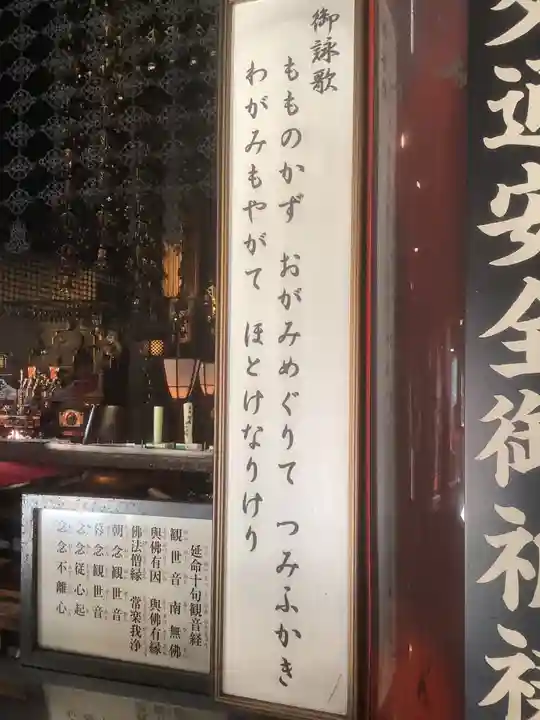 交通安全御祈祷
御詠歌
もものかず おがみめぐりて つみふかき
わがみもやがて ほとけなりけり
延命十句観音経
観世音 南無佛
與佛有因 與佛有縁
佛法僧縁 常楽我浄
朝念観世音
暮念観世音
念念従心起
念念不離心